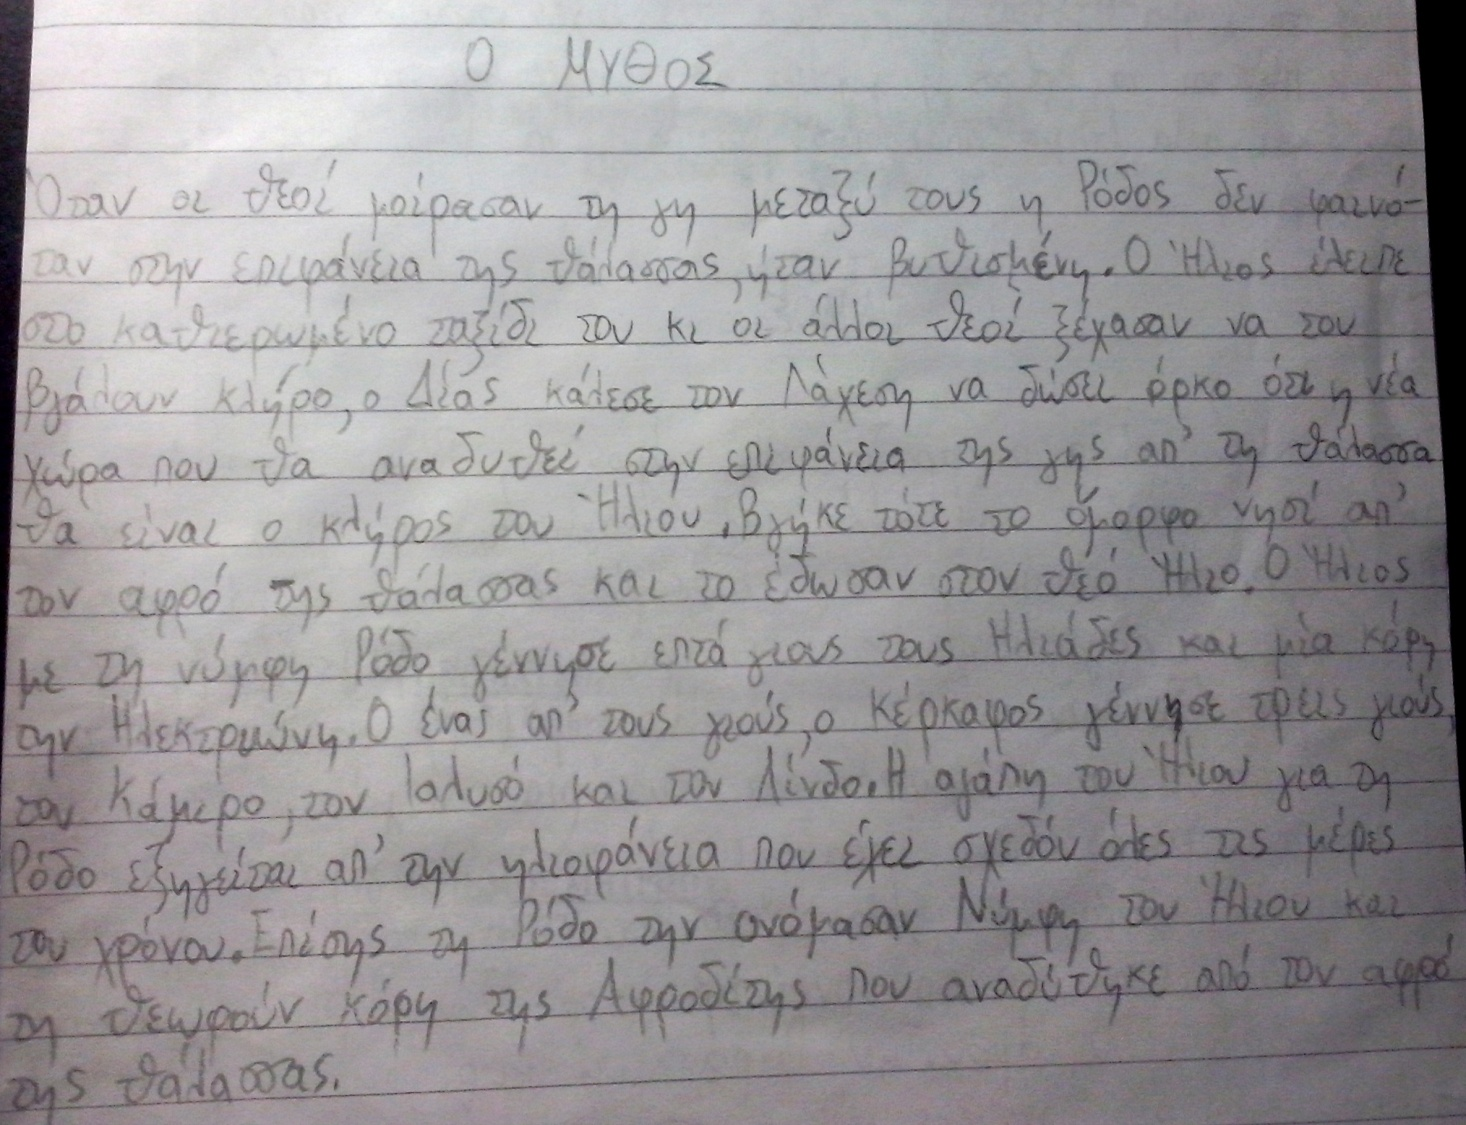 Ο ΜΥΘΟΣ
Όταν οι θεοί μοίρασαν τη γη μεταξύ τους η Ρόδος δεν φαινό-
ταν στην επιφάνεια της θάλασσας, ήταν βυθισμένη. Ο Ήλιος έλειπε
στο καθιερωμένο ταξίδι του κι οι άλλοι θεοί ξέχασαν να του
βγάλουν κλήρο, ο Δίας κάλεσε τον Λάχεση να δώσει όρκο ότι η νέα
χώρα που θα αναδυθεί στην επιφάνεια της γης απ' τη θάλασσα
θα είναι ο κλήρος του Ήλιου. Βγήκε τότε το όμορφο νησί απ'
τον αφρό της θάλασσας και το έδωσαν στον θεό Ήλιο. Ο Ήλιος
με τη νύμφη Ρόδο γέννησε επτά γιους τους Ηλιάδες και μία κόρη
την Ηλεκτρυώνη. Ο ένας απ' τους γιούς, ο Κέρκαφος γέννησε τρεις γιούς,
τον Κάμιρο, τον Ιαλυσό και τον Λίνδο. Η αγάπη του Ήλιου για τη
Ρόδο εξηγείται απ' την ηλιοφάνεια που έχει σχεδόν όλες τις μέρες
του χρόνου. Επίσης τη Ρόδο την ονόμασαν Νύμφη του Ήλιου και
τη θεωρούν κόρη της Αφροδίτης που αναδύθηκε από τον αφρό
της θάλασσας.